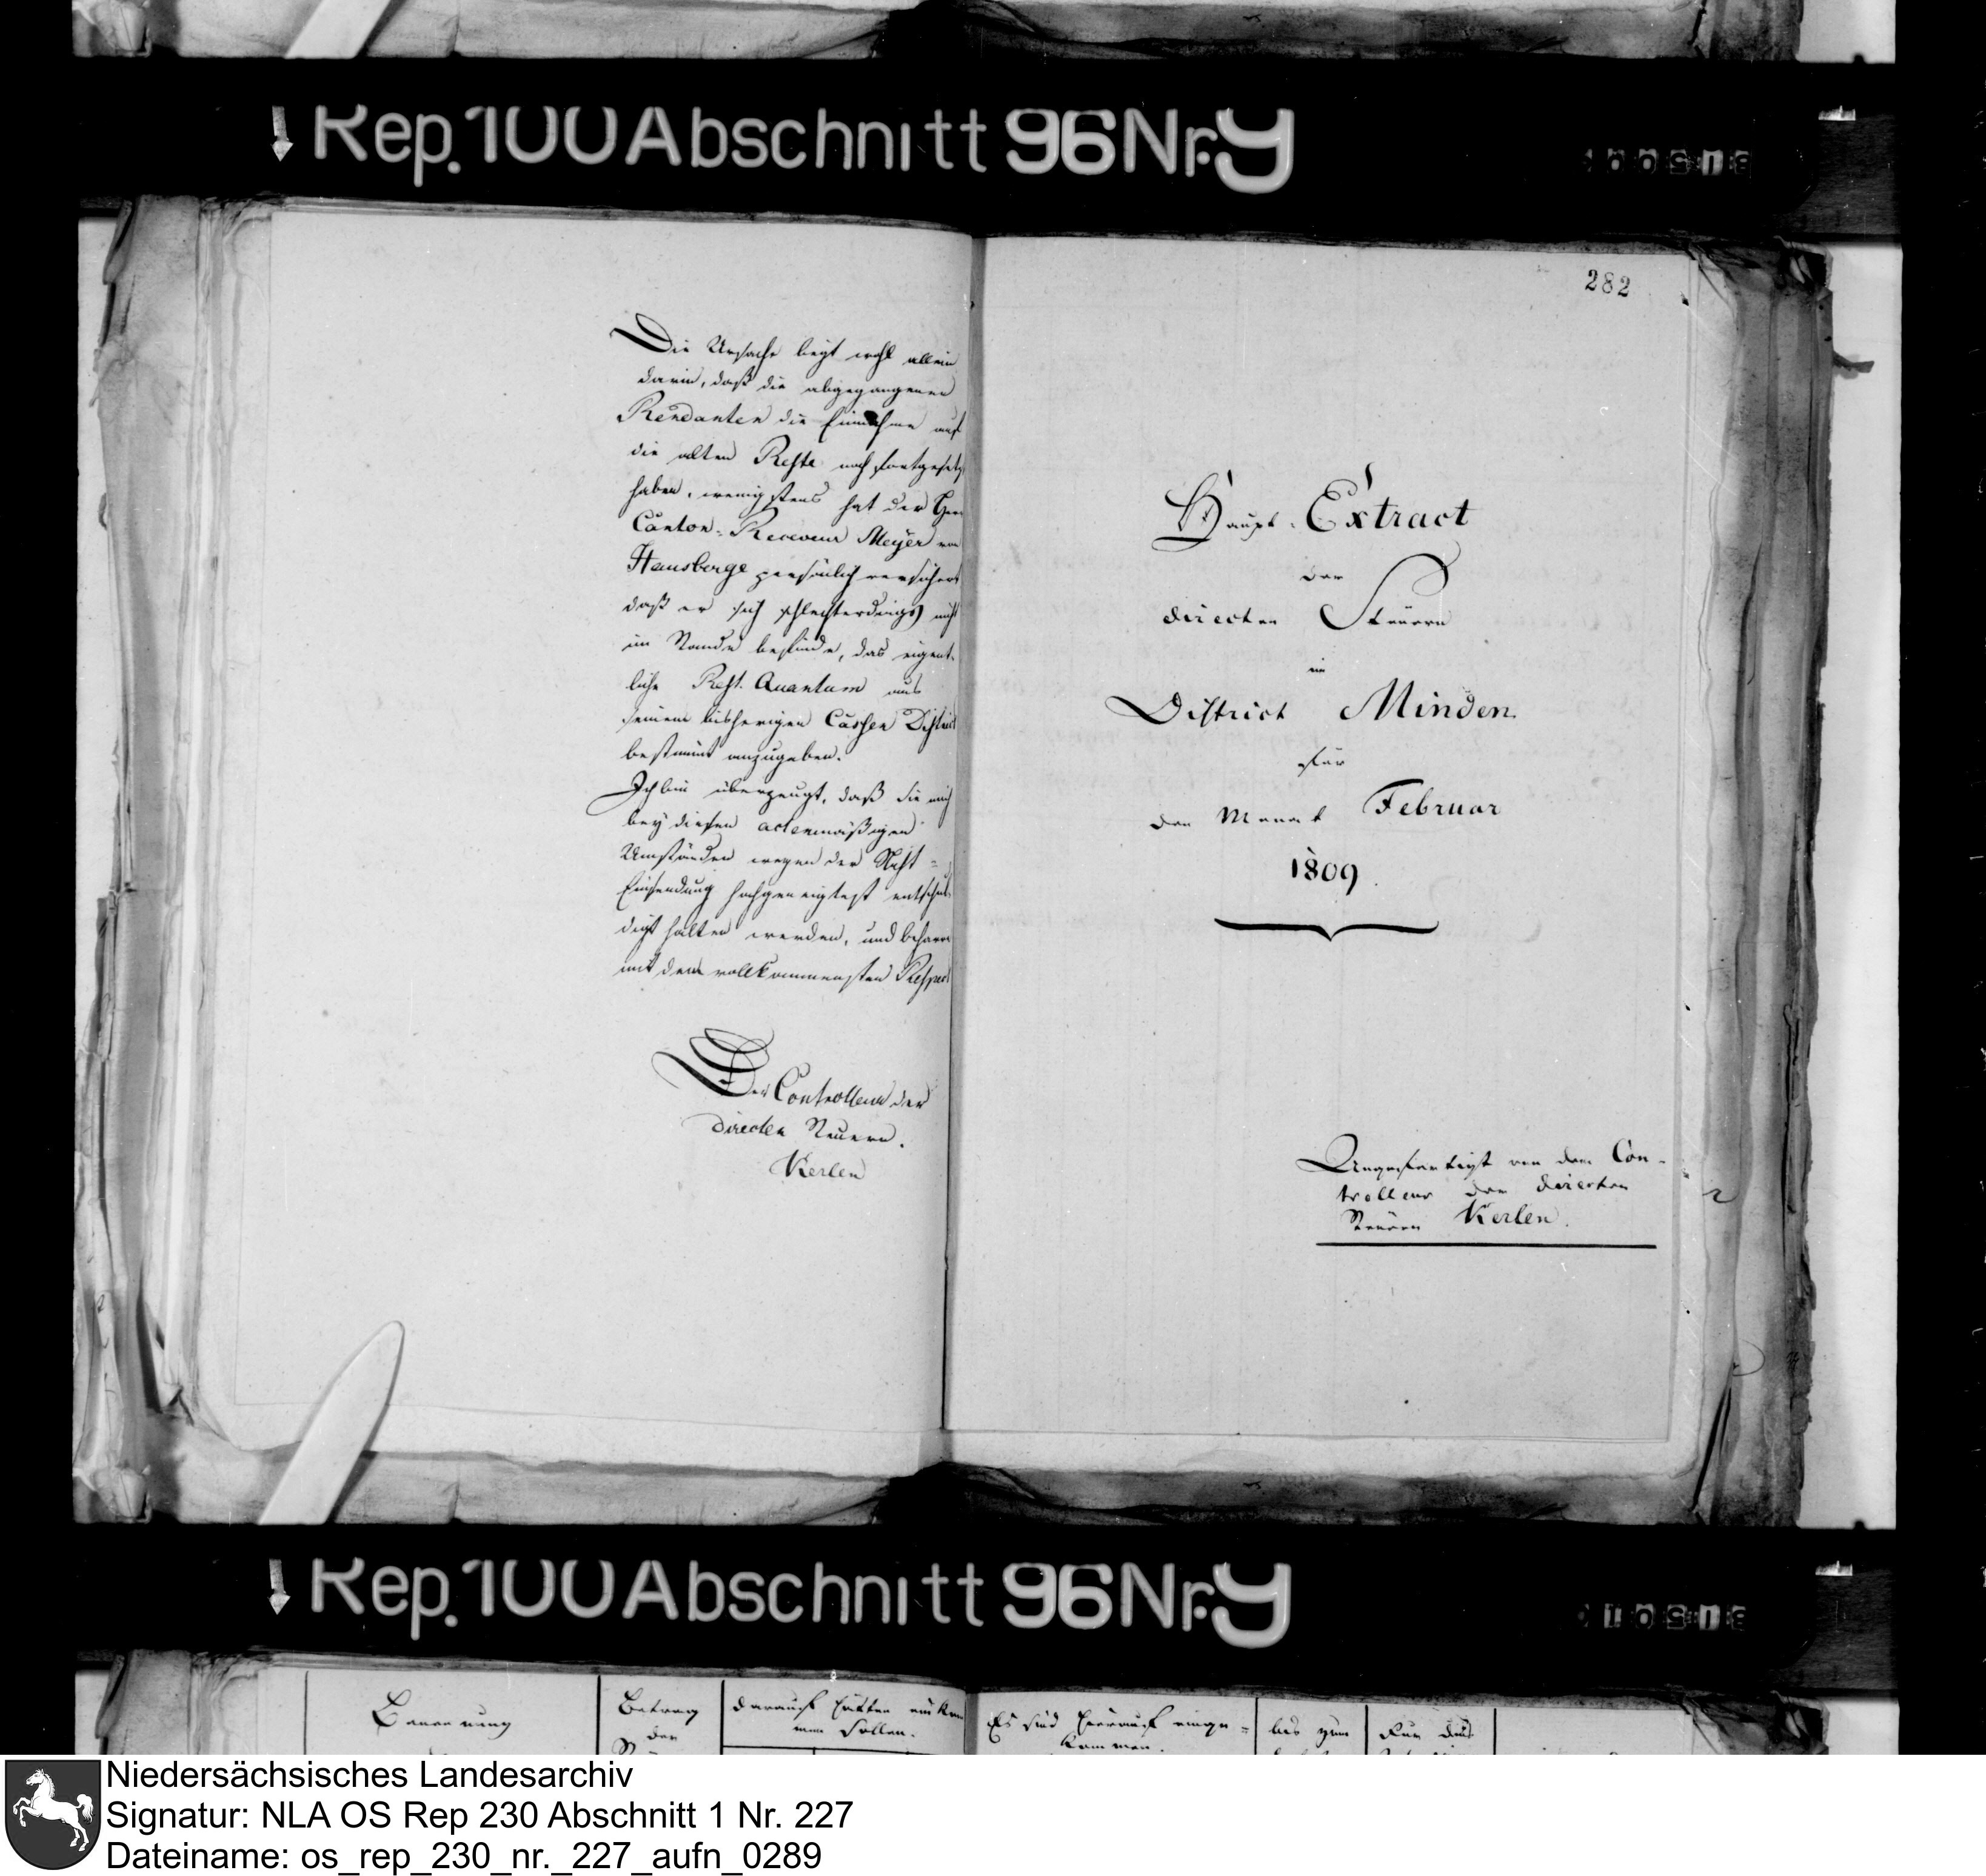 Rep. 100 Abschnitt 96 Nr. 9
31500
Die Ursache liegt wohl allein
darin, daß die abgegangenen
Rendanten die Einnahme auf
die alten Reste noch fortgesetzt
haben, wenigstens hat der Herr
Canton-Receveur Meyer von
Hausberge persönlich versichert
daß er sich schlechterdings nicht
im Stande befinde, das eigent-
liche Rest-Quantum aus
seinem bisherigen Cassen District
bestimt anzugeben.
Ich bin überzeugt, daß Sie mich
bey diesen actenmäßigen
Umständen wegen der Nicht=
Einsendung hochgeneigtest entschul-
digt halten werden, und beharre
mit dem vollkommensten Respect
Der Controlleur der
directen Steuern.
Kerlen
282
Haupt-Extract
der
directen Steuern
im
District Minden
für
den Monat Februar
1809.
Angefertigt von dem Con-
trolleur der directen
Steuern Kerlen.
Rep. 100 Abschnitt 96 Nr. 9
31501
Benennung
Betrag
der
darauf hätten einkom
men sollen.
Es sind hierauf einge=
kommen.
bis zum
Für das
Niedersächsisches Landesarchiv
Signatur: NLA OS Rep 230 Abschnitt 1 Nr. 227
Dateiname: os_rep_230_nr._227_aufn_0289